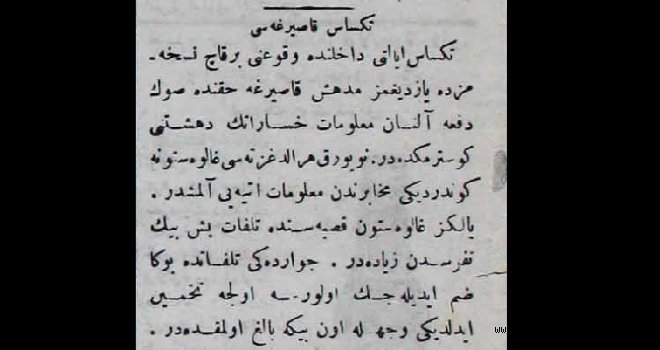 تكساس قاصيرغه‌سى
تكساس ايالتى داخلنده وقوعنى برقاچ نسخه‌ـ
مزده يازديغمز مدهش قاصيرغه حقنده صوك
دفعه آلنان معلومات خساراتك دهشتنى
كوسترمكده‌در. نويورق هرالد غزته‌سى غالوه‌ستونه
كوندرديكى مخابرندن معلومات اتيه‌يى آلمشدر .
يالكز غالوه‌ستون قصبه‌سنده تلفات بش بيك
نفرسدن زياده‌در . جوارده‌كى تلفاتده بوكا
ضم ايديله‌جك اولورسه اولجه تخمين
ايدلديكى وجهله اون بيكه بالغ اولمقده‌در .